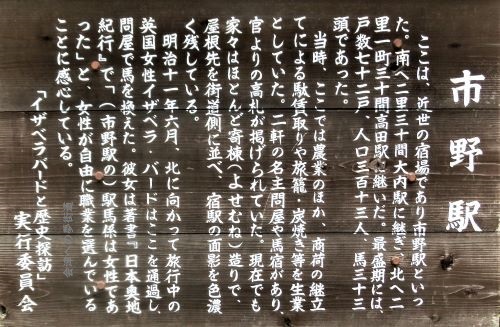 市野駅
ここは、近世の宿場であり市野駅といっ
た。南へ二里三十間大内駅に継ぎ、北へ二
里一町三十間高田駅に継いだ。最盛期には、
戸数七十二戸、人口三百十三人、馬三十三
頭であった。
当時、ここでは農業のほか、商荷の継立
てによる駄賃取りや旅籠・炭焼き等を生業
としていた。二軒の名主問屋や馬宿があり、
官よりの高札が掲げられていた。現在でも
家々はほとんど寄棟(よせむね)造りで、
屋根先を街道側に並べ、宿駅の面影を色濃
く残している。
明治十一年六月、北に向かって旅行中の
英国女性イザベラ・バードはここを通過し、
問屋で馬を換えた。彼女は著書『日本奥地
紀行』で「(市野駅の)駅馬係は女性であ
った」と、女性が自由に職業を選んでいる
ことに感心している。
「イザベラバードと歴史探訪」
実行委員会